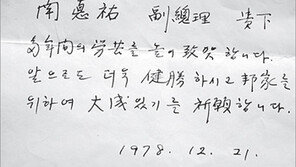 南 悳祐 副總理 貴下
多年間의 勞苦를 높이 致賀 합니다.
앞으로도 더욱 健勝 하시고 邦家를
위하여 大成있기를 祈願합니다.
1978. 12. 21.